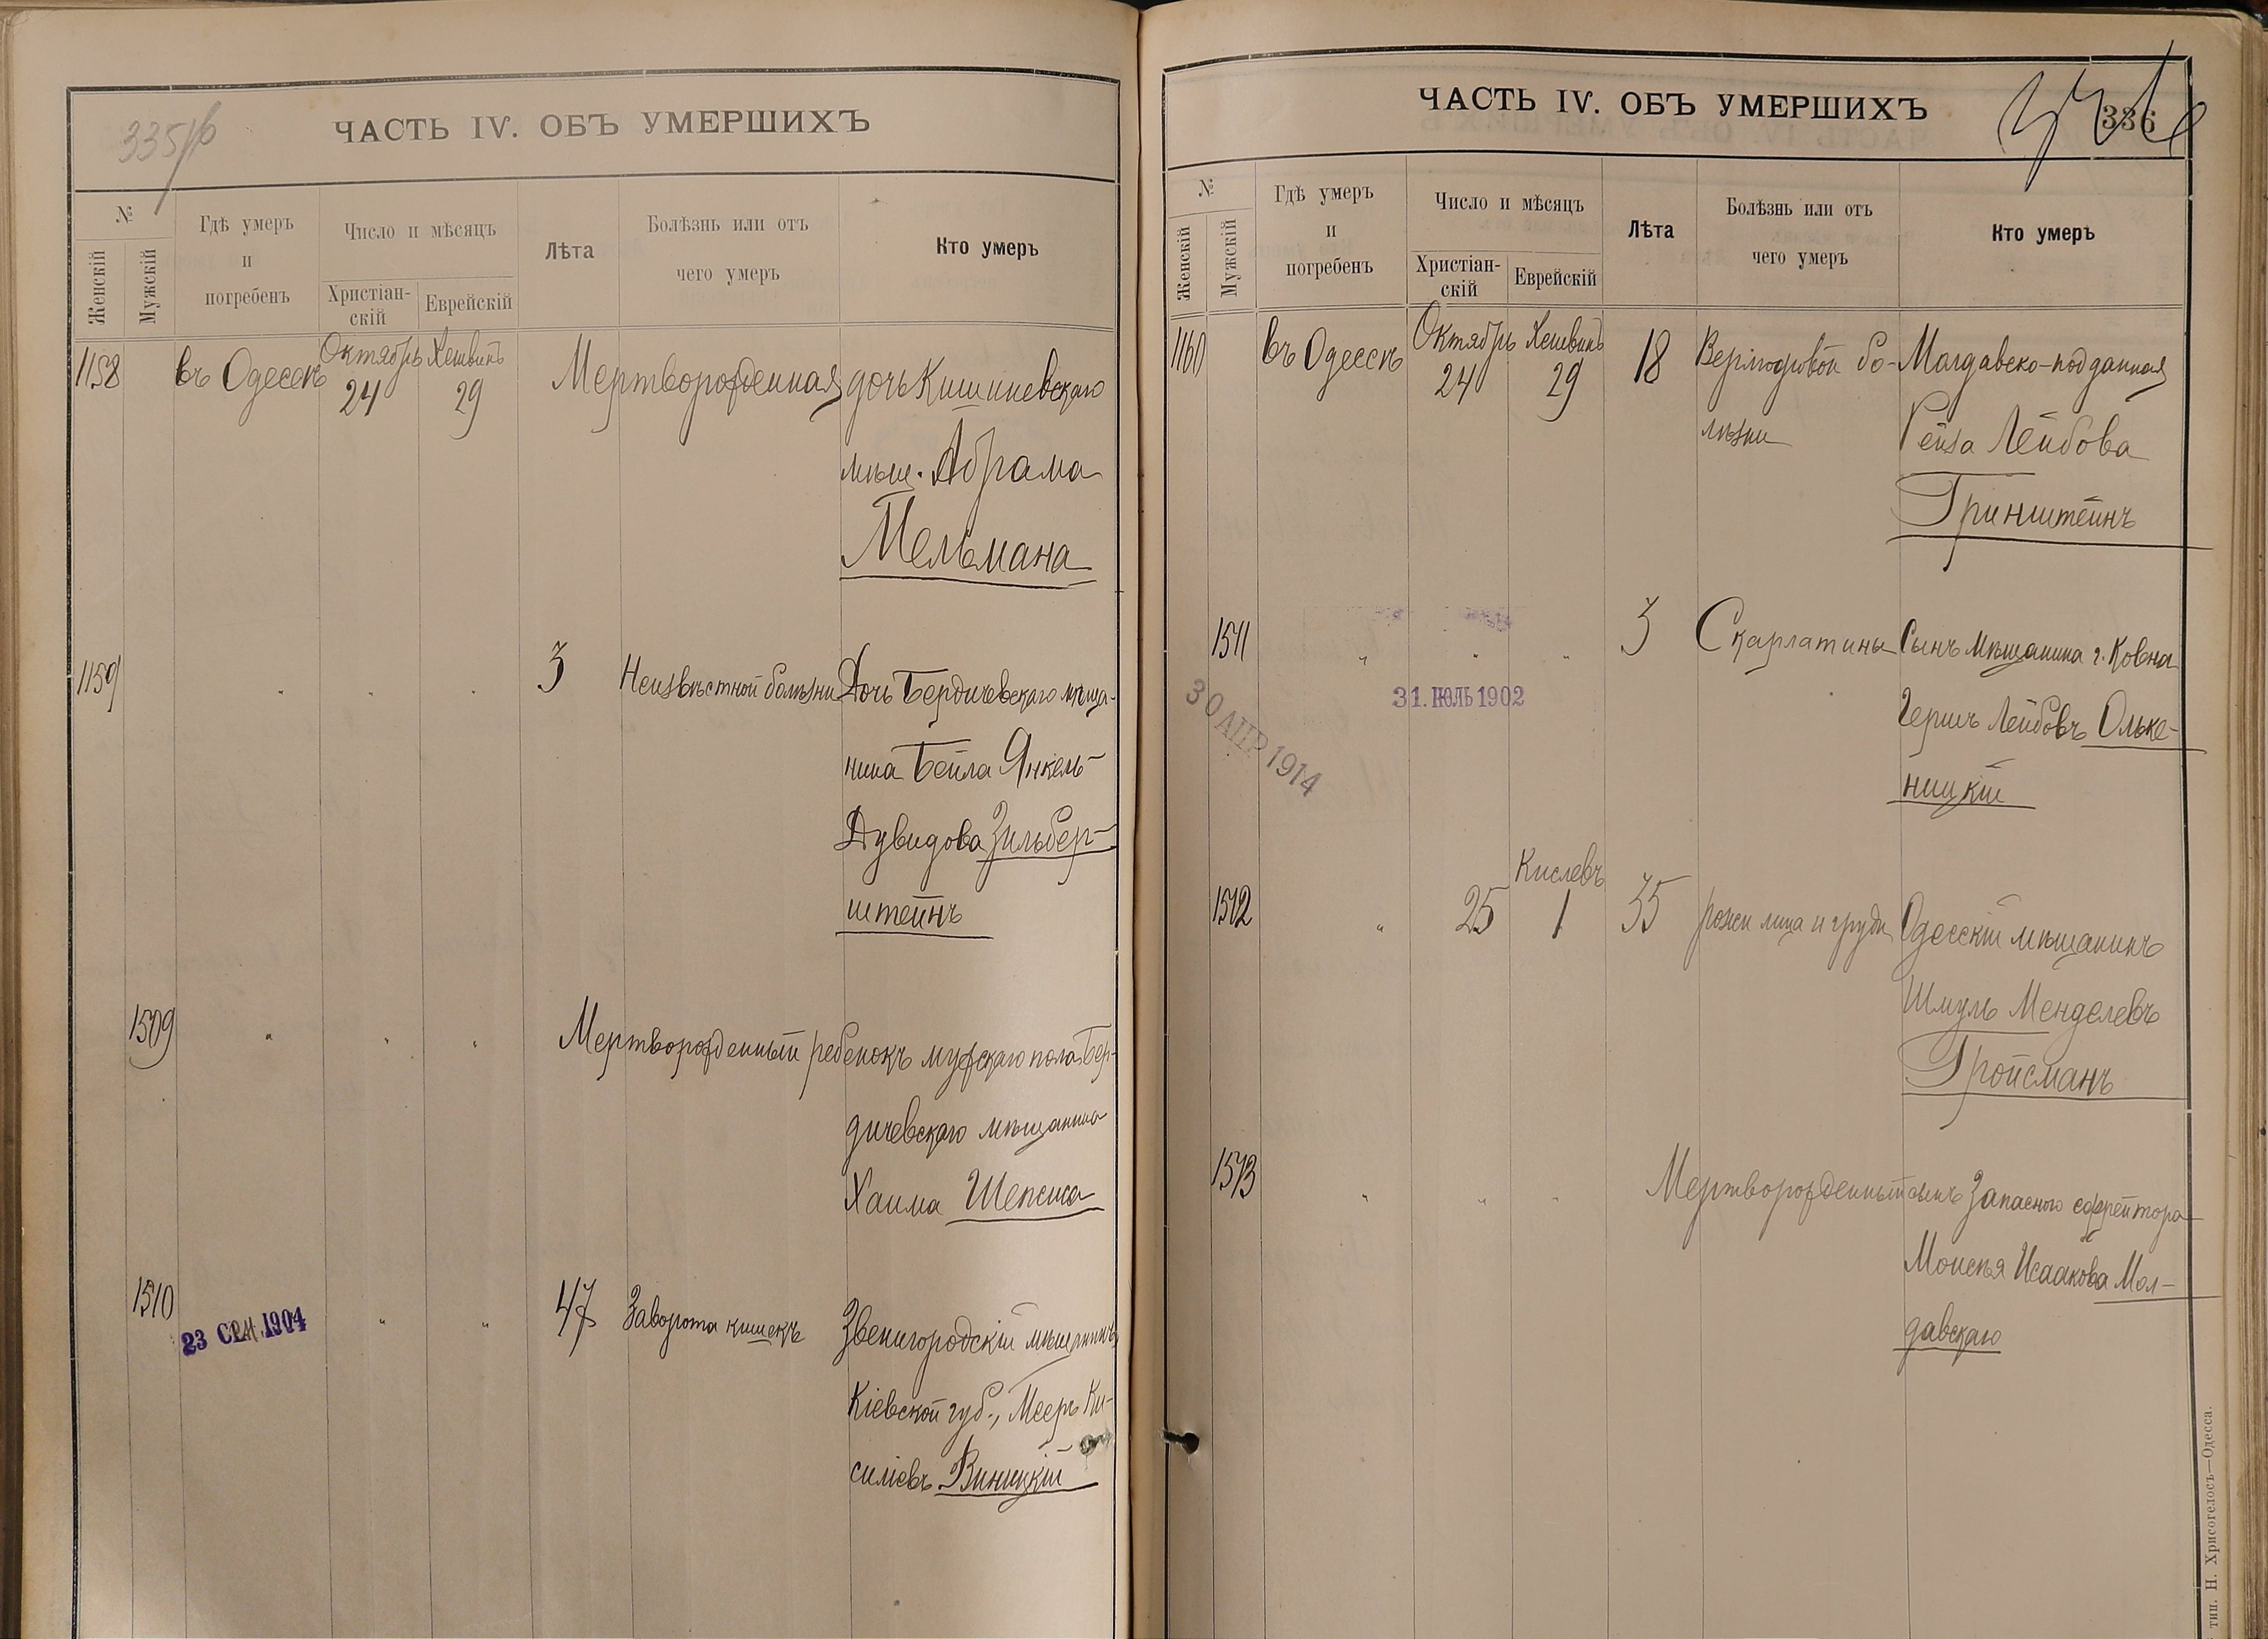 335об
ЧАСТЬ IV. ОБЪ УМЕРШИХЪ
№
Женскій
Мужскій
Гдѣ умеръ
и
погребенъ
Число и мѣсяцъ
Христіан-
скій
Еврейскій
Лѣта
Болѣзнь или отъ
чего умеръ
Кто умеръ
1158 въ Одессѣ Октябрь 24 Хешвинъ 29 Мертворожденная дочь Кишиневскаго
мѣщ. Абрама
Мельмана
1159 " " " 3 Неизвѣстной болѣзни Дочь Бердичевскаго мѣща-
нина Бейла Янкель-
Дувидова Зильбер-
штейнъ
1509 " " " Мертворожденный ребенокъ мужскаго пола Бер-
дичевскаго мѣщанина
Хаима Шепсиса
1510 " " 47 Заворота кишекъ Звенигородскій мѣщанинъ
23 СЕН 1904
Кіевской губ., Мееръ Ки-
силіевъ Виницкій
ЧАСТЬ IV. ОБЪ УМЕРШИХЪ
336
№
Женскій
Мужскій
Гдѣ умеръ
и
погребенъ
Число и мѣсяцъ
Христіан-
скій
Еврейскій
Лѣта
Болѣзнь или отъ
чего умеръ
Кто умеръ
1160 въ Одессѣ Октябрь 24 Хешвинъ 29 18 бо- Молдавско-подданная
лѣзни Рейза Лейбова
Гринштейнъ
1511 " " " 3 Скарлатины Сынъ мѣщанина г. Ковна
31. ІЮЛЬ 1902
30 АПР 1914
Гершъ Лейбовъ Ольке-
ницкій
Кислевъ
1512 " 25 1 35 рожи лица и груди Одесскій мѣщанинъ
Шмуль Менделевъ
Гройсманъ
1513 " " " Мертворожденный сынъ Запасного ефрейтора
Моисея Исаакова Мол-
давскаго
тип. Н. Хрисогелосъ—Одесса.